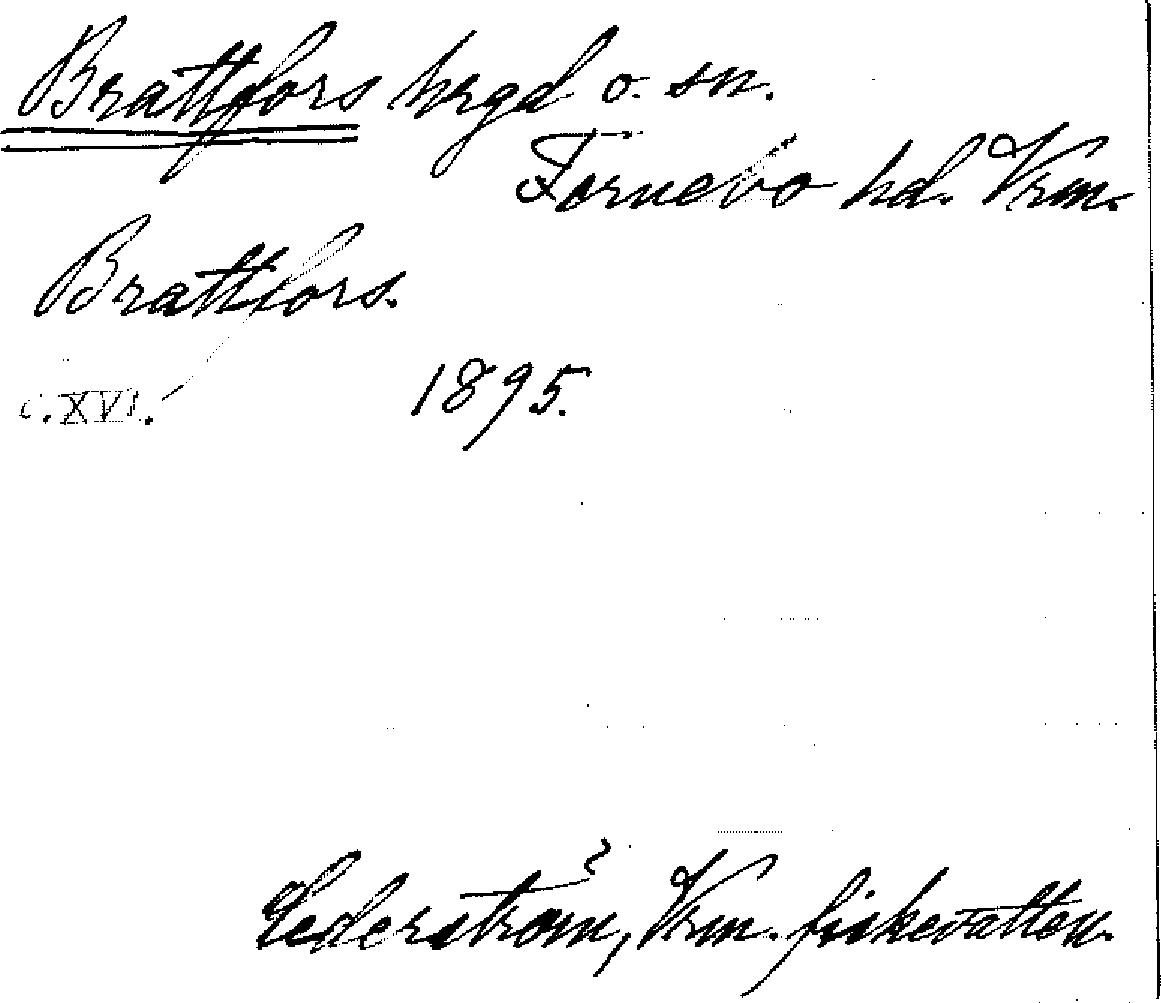 Brattfors hrgd o. sn.
Färnebo hd. Vrm.
Brattfors.
c. XVI. 1895.
Cederström, Vrm. fiskevatten.